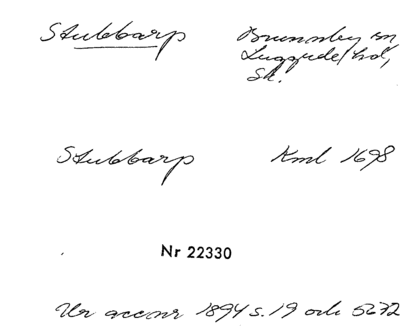 Stubbarp Brunnby sn
Luggude hd,
Sk.
Stubbarp Kml 1698
Nr 22330
Ur accnr 1894 s. 19 och 5672